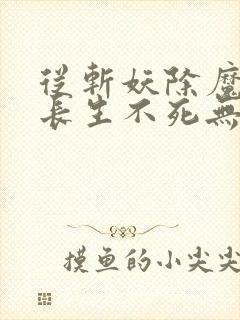 從斬妖除魔
長生不死無
摸鱼的小尖尖